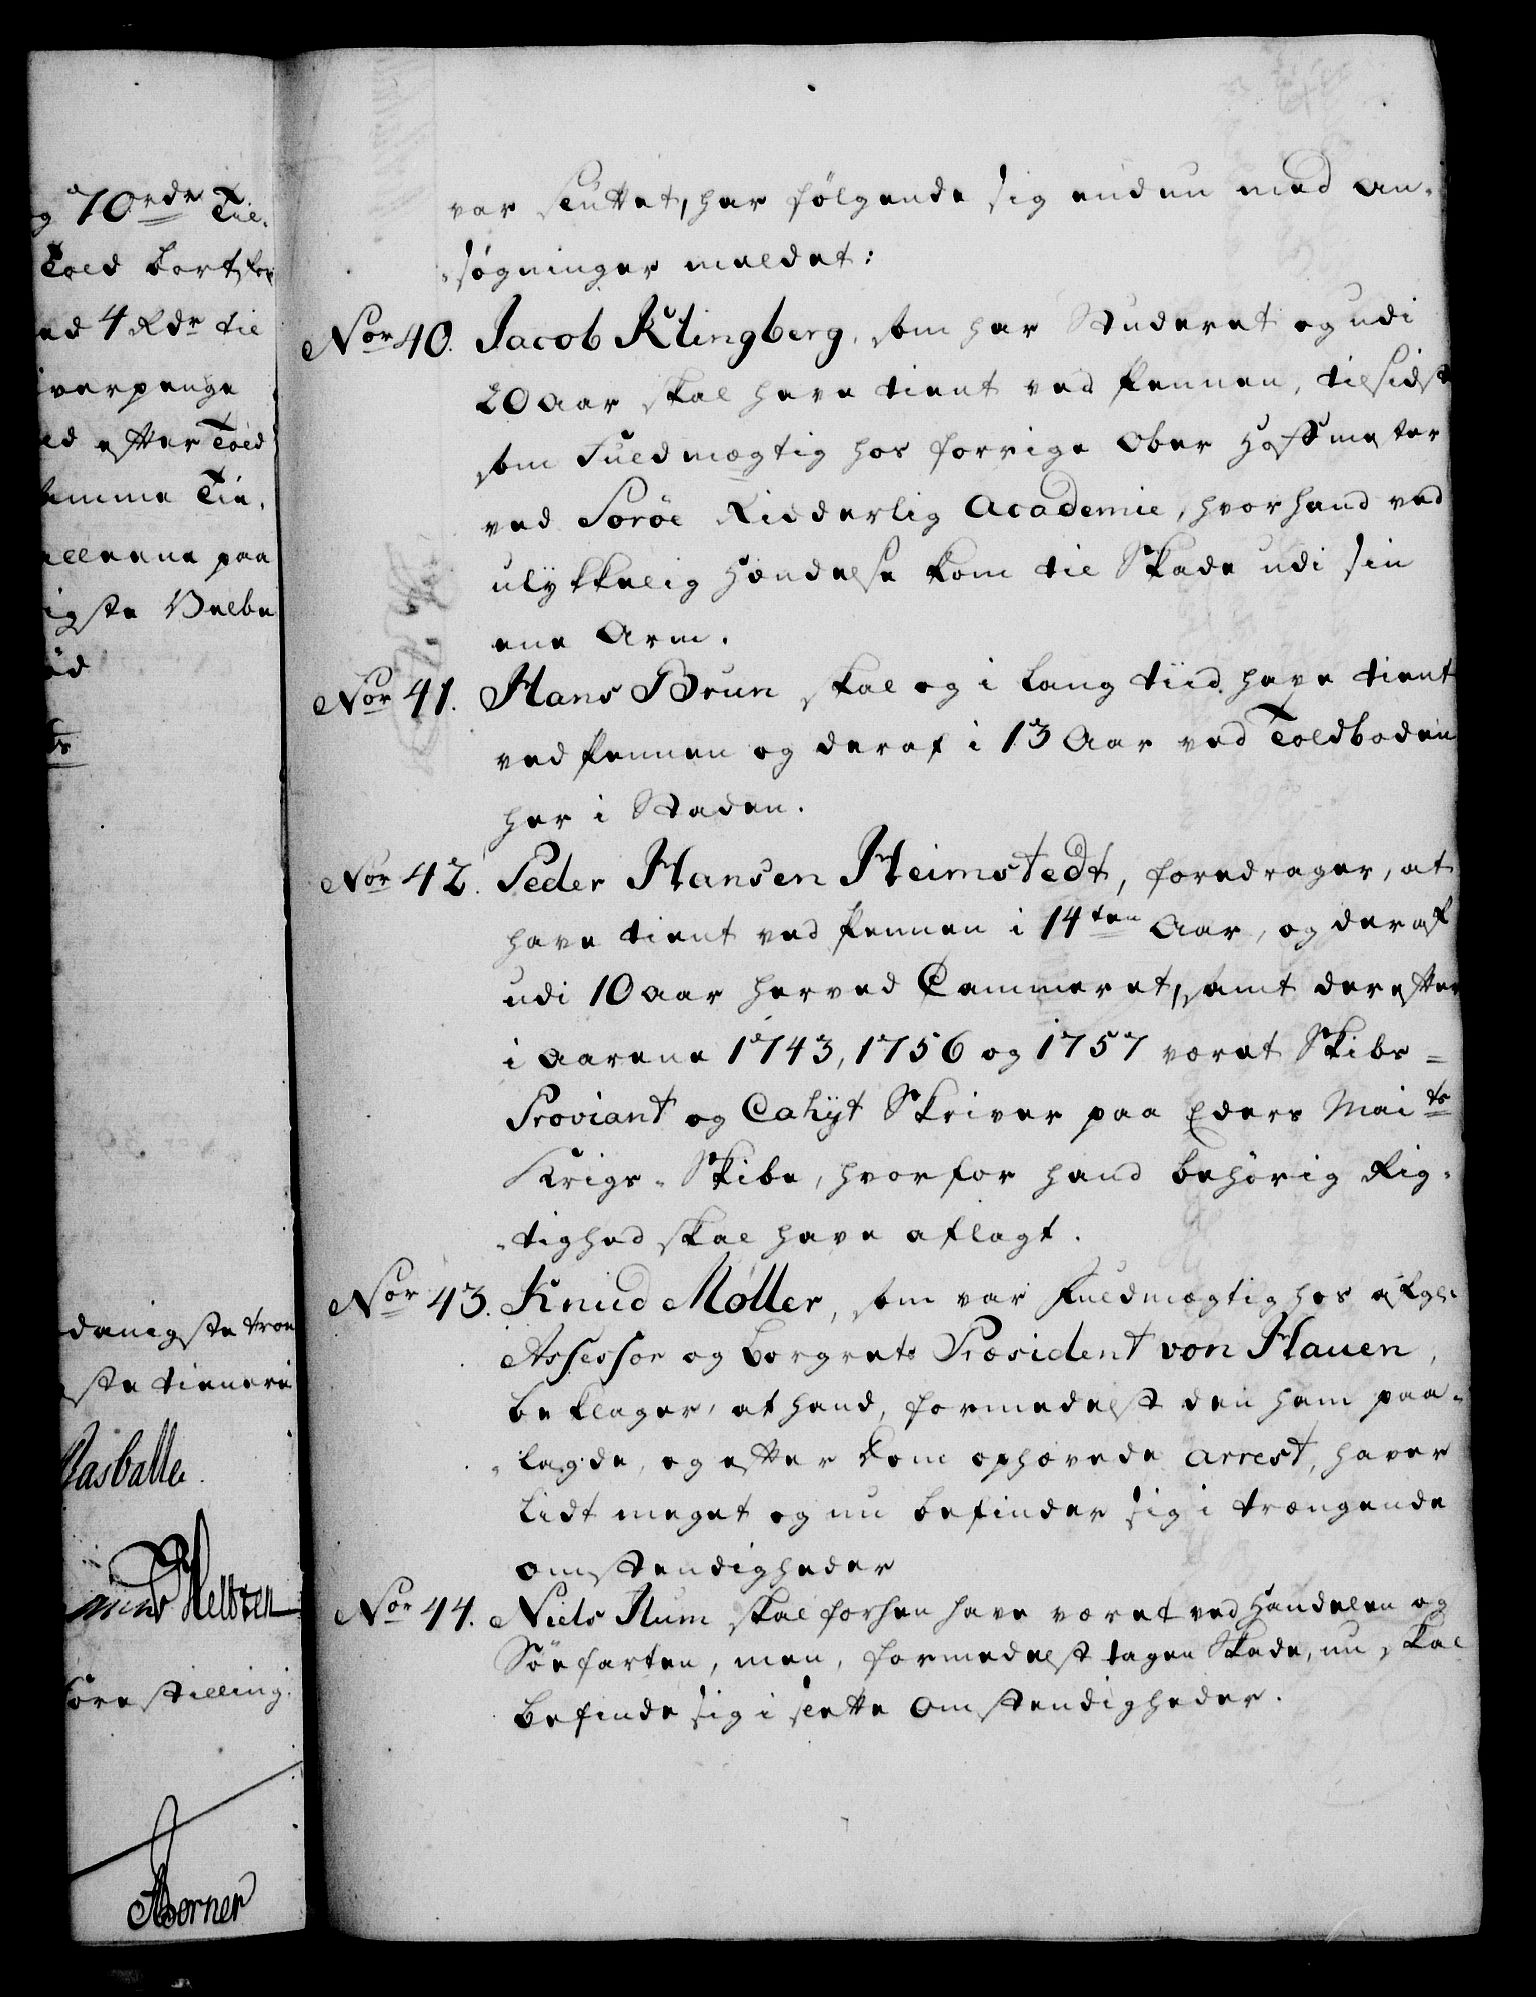 g 70 rdr Til-
Told bortfor
ed 4 Rdr til
iverpenge
ed efter Told
emme Tie,
alleene paa
igste Velbe
ød
danigste troe
ste tienere
Rasballe.
Nelbzen
forestilling.
AWorner
var sluttet, har følgende sig endnu med an-
-søgninger meldet:
Nor 40. Jacob Klingberg, som har Studeret og udi
20 Aar skal have tient ved Pennen, tilsidst
som Fuldmægtig hos forrige Ober Hoffmester
ved Sorøe Ridderlig Academie, hvor hand ved
ulykkelig Hændelse kom til Skade udi sin
ene Arm.
Nor 41. Hans Brun skal og i lang tiid have tient
ved Pennen og deraf i 13 Aar ved Toldboden
her i Staden.
Nor 42. Peder Hansen Heimstedt, foredrager, at
have tient ved Pennen i 14ten Aar, og deraf
udi 10 Aar herved Cammeret, samt derefter
i Aarene 1743, 1756 og 1757 været Skibs-
Proviant og Cahyt Skriver paa Eders Maits
Krigs-Skibe, hvorfor hand behørig Rig-
-tighed skal have aflagt.
Nor 43. Knud Møller, som var Fuldmægtig hos afgl:
Assessor og Borgrets Præsident von Hauen,
beklager, at hand, formedelst den ham paa-
-lagde, og efter Dom ophævede Arrest, haver
lidt meget og nu befinder sig i trængende
omstendigheder
Nor 44. Niels Rum skal forhen have været ved Handelen og
Søefarten, men, formedelst tagen Skade, nu skal
befinde sig i slette Omstendigheder.